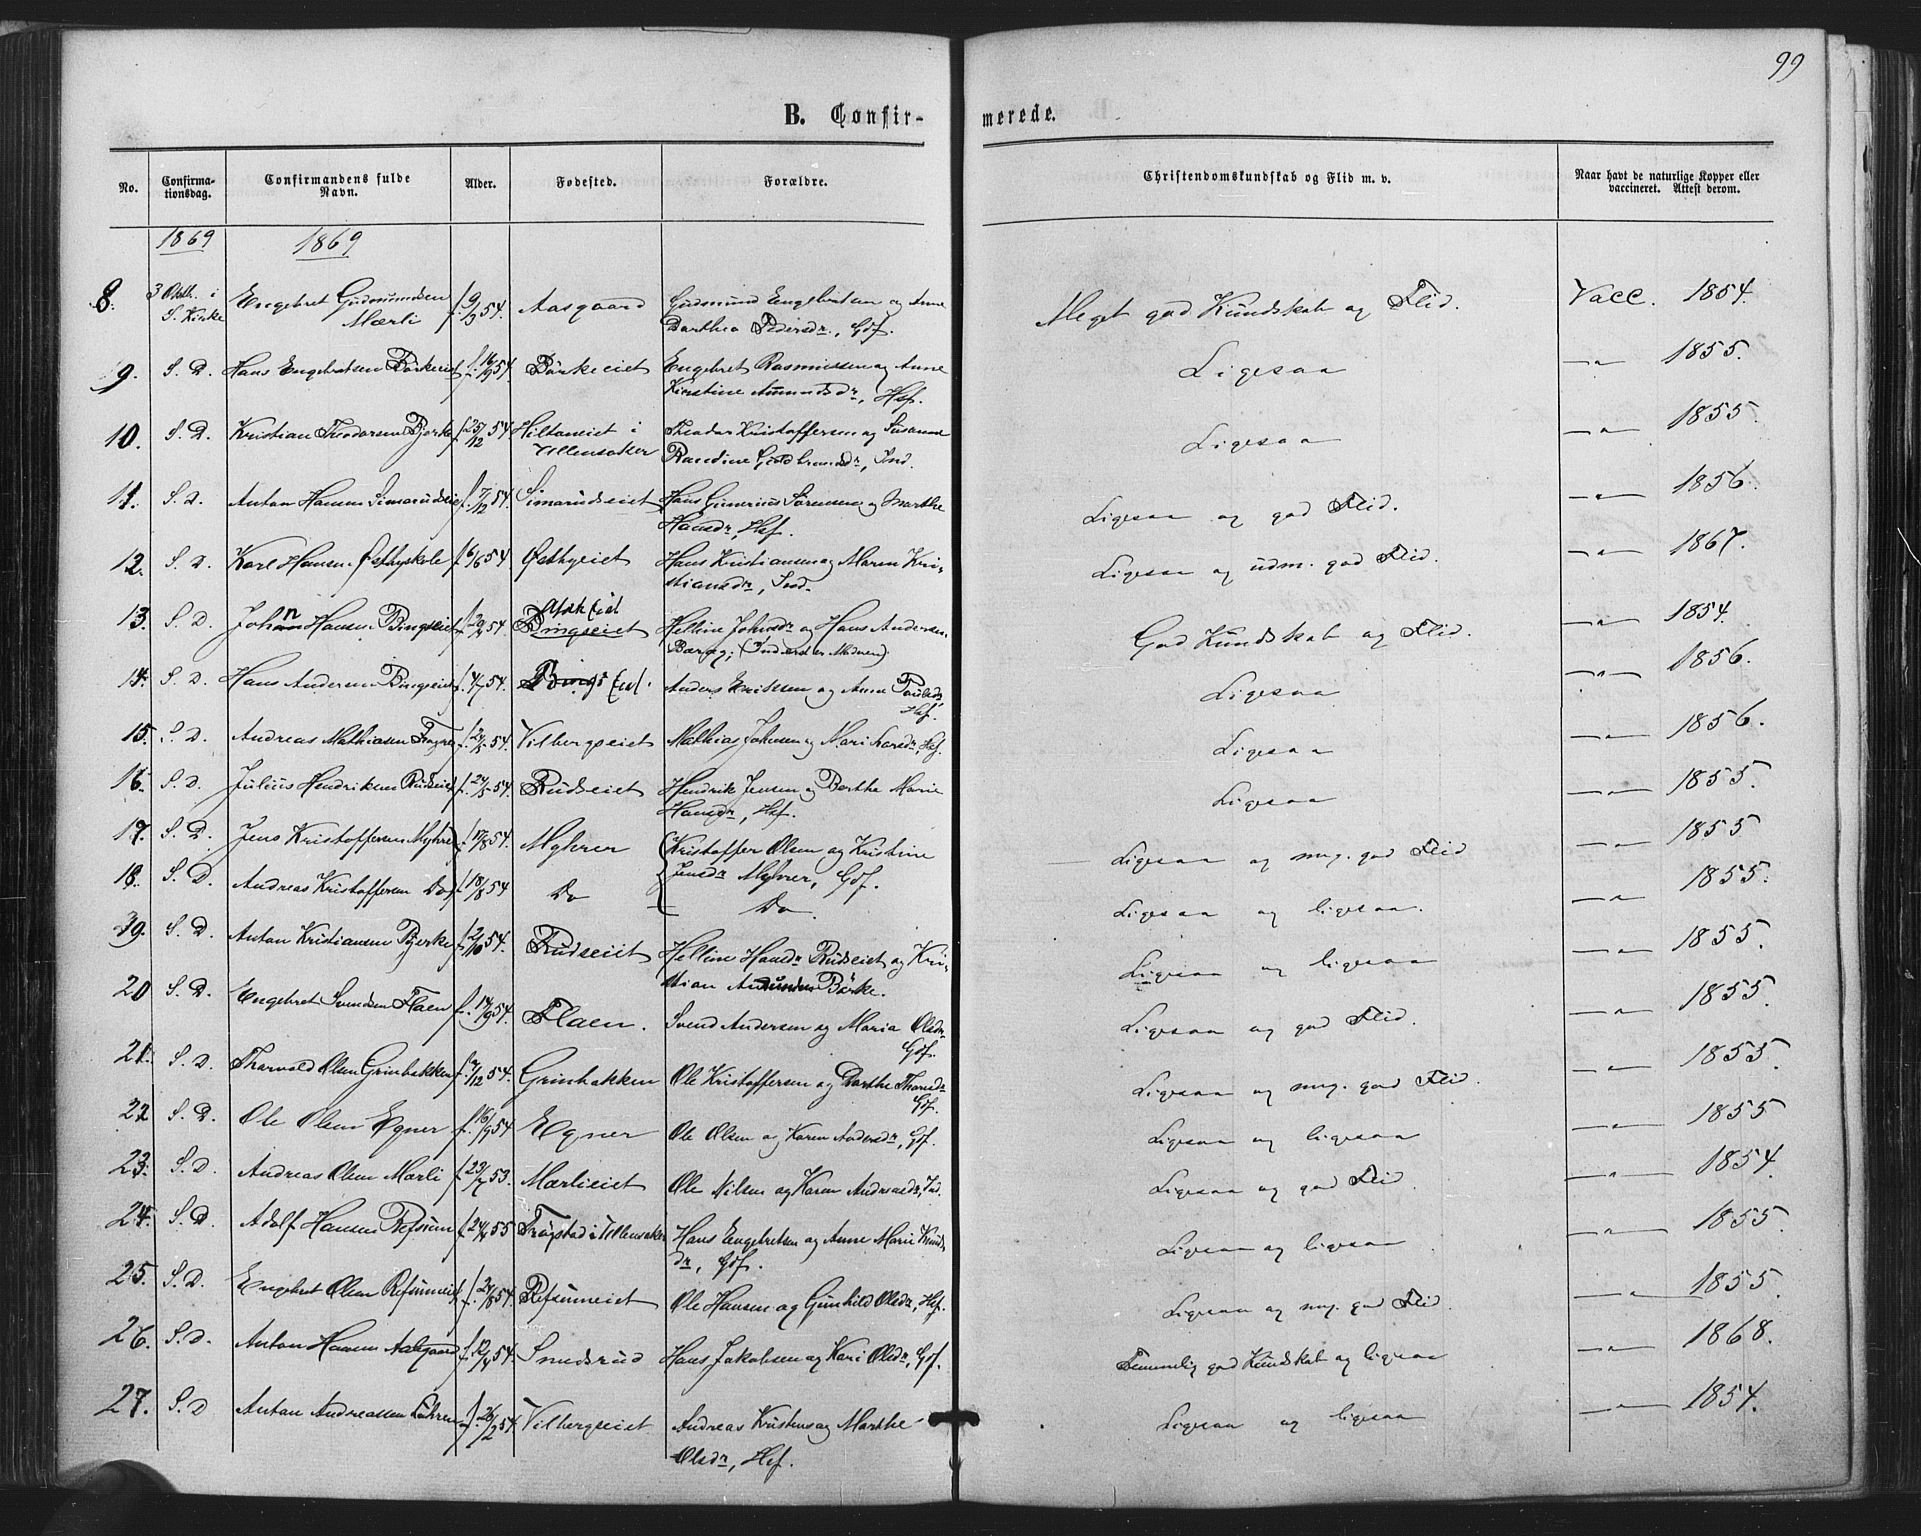 99
B. Confir- merede.
No. Confirma- tionsdag. Confirmandens fulde Navn. Alder. Fødested. Forældre. Christendomskundskab og Flid m. v. Naar havt de naturlige Kopper eller vaccineret. Attest derom.
1869 1869
8. 3 Oktb. i S. Kirke Engebret Gudmundsen Mærli f. 9/3 54. Aasgaard Gudmund Engebretsen og Anne Dorthea Pedersdr, Gdf. Meget god Kundskab og Flid. Vacc. 1854.
9. S. D. Hans Engebretsen Børkeeiet f. 16/9 54. Børkeeiet Engebret Rasmussen og Anne Kirstine Amundsdr, Hsf. Ligesaa —"— 1855.
10. S. D. Kristian Theodorsen Bjørke f. 25/12 54 Hiltoneiet i Ullensaker Theodor Kristoffersen og Susanne Randine Guldbrandsdr, Ind. Ligesaa —"— 1855
11. S. D. Anton Hansen Simarudseie f. 7/12 54. Simarudseiet Hans Gunerius Sørensen og Marthe Hansdr, Hsf. Ligesaa og god Flid. —"— 1856.
12. S. D. Karl Hansen Østbyskole f. 6/6 54 Østbyeiet Hans Kristiansen og Maren Kri- stiansdr, Ind. Ligesaa og udm. god Flid. —"— 1867.
13. S. D. Johan Hansen Bingseiet 54 Askeiet Bingseiet Helline Johnsdr og Hans Andersen God Kundskab og Flid. —"— 1854.
14. S. D. Hans Andersen Bingseiet f. 4/7 54. Bingseiet. Anders Eriksen og Anne Paulsdr Hsf. Ligesaa —"— 1856.
15. S. D. Andreas Mathiasen f. 2/5 54. Vilbergseiet Mathias Johnsen og Mari Larsdr, Hsf. Ligesaa —"— 1856.
16. S. D. Julius Hendriksen Rudseiet f. 24/5 54. Rudseiet Hendrik Jensen og Berthe Marie Hansdr, Hsf. Ligesaa —"— 1855
17. S. D. Jens Kristoffersen Myhrer f. 18/8 54. Myhrer Kristoffer Olsen og Kristine Jensdr Myhrer, Gdf. Ligesaa og mg. god Flid —"— 1855
18. S. D. Andreas Kristoffersen Do f. 18/8 54 Do Do. Ligesaa og ligesaa. —"— 1855.
19. S. D. Anton Kristiansen Bjerke f. 2/10 54. Rudseiet Helline Hansdr Rudseiet og Kri- stian Amundsen Børke. Ligesaa og ligesaa —"— 1855.
20 S. D. Engebret Svendsen Flaen f. 14/9 54. Flaen. Svend Andersen og Maria Olsdr Gdf. Ligesaa og god Flid. —"— 1855.
21. S. D. Thorvald Olsen Grinbakken f. 7/12 54. Grinbakken Ole Kristoffersen og Dorthe Thorsdr Gdf. Ligesaa og mg. god Flid. —"— 1855
22 S. D. Ole Olsen Egner f. 16/9 54 Egner Ole Olsen og Karen Andersdr, Gdf. Ligesaa og ligesaa —"— 1855
23. S. D. Andreas Olsen Mærli f. 23/7 53. Mærlieiet Ole Nilsen og Karen Andreasdr, Ind. Ligesaa og god Flid. —"— 1854
24. S. D Adolf Hansen Refsum f. 24/4 55 Trøgstad i Ullensaker Hans Engebretsen og Anne Marie Knuds dr, Gdf. Ligesaa og ligesaa —"— 1855.
25. S. D. Engebret Olsen Refsumeiet f. 24/8 54. Refsumeiet Ole Hansen og Gunhild Olsdr, Hsf. Ligesaa og mg. god Flid —"— 1855.
26. S. D. Anton Hansen Aasgaard f. 12/4 54. Smedsrud Hans Jakobsen og Kari Olsdr, Gdf. Temmelig god Kundskab og ligesaa —"— 1868.
27. S. D Anton Andreassen f. 26/2 54. Vilbergseiet Andreas og Marthe Olsdr, Hsf. Ligesaa og ligesaa —"— 1854.